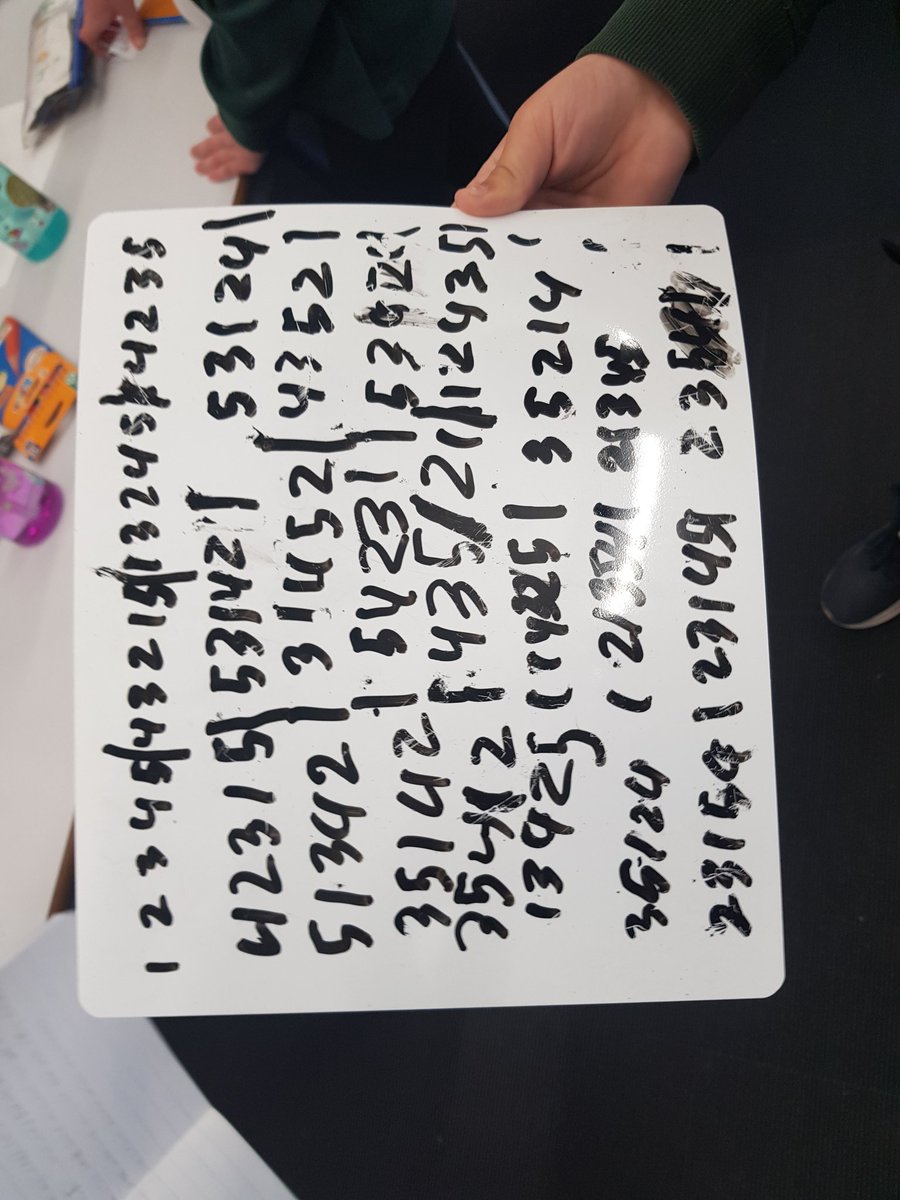 1 2 3 4 5 | 4 3 2 1 5 | 1 3 2 4 5 | 4 2 3 5
4 2 3 1 5 | 5 3 1 4 2 | 5 3 1 2 4 |
5 1 3 4 2 | 3 1 4 5 2 | 4 3 5 2 1
3 5 1 4 2 | 5 4 2 3 1 | 5 2
3 5 4 1 2 | 4 3 5 1 2 | 1 2 4 3 5 |
1 3 4 2 5 | 1 4 2 5 | 3 5 2 1 4 |
3 5 1 2 4 |
2 3 1 5 4 | 2 3 1 4 5